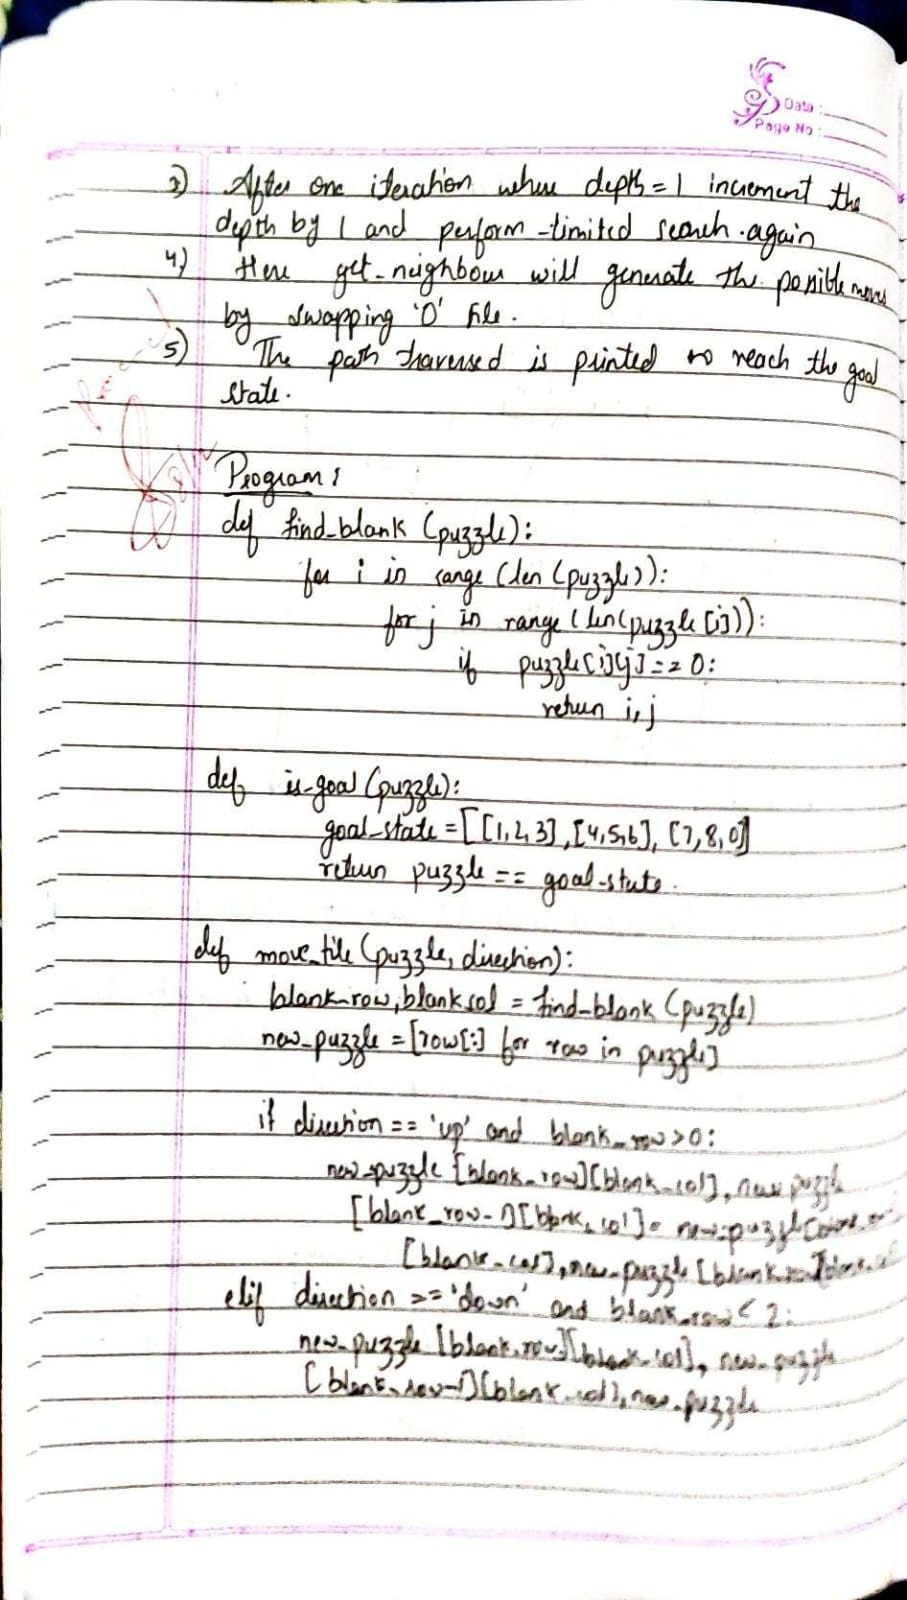 Date :
Page No :
3) After one iteration where depth = 1 increment the
depth by 1 and perform -limited search again
4) Here get-neighbour will generate the possible moves
by swapping '0' tile.
5) The path traversed is printed to reach the goal
state.
Program :
def find_blank (puzzle):
for i in range (len (puzzle)):
for j in range (len(puzzle [i])):
if puzzle[i][j] == 0:
return i, j
def is-goal (puzzle):
goal-state = [[1,2,3], [4,5,6], [7,8,0]]
return puzzle == goal-state.
def move_tile (puzzle, direction):
blank-row, blank col = find-blank (puzzle)
new_puzzle = [row[:] for row in puzzle]
if direction == 'up' and blank_row > 0:
new_puzzle [blank_row][blank_col], new puzzle
[blank_row-1][blank_col] = new-puzzle
[blank-col], new-puzzle
elif direction == 'down' and blank_row < 2:
new-puzzle [blank_row][blank-col], new-puzzle
[blank_row-1][blank-col], new-puzzle